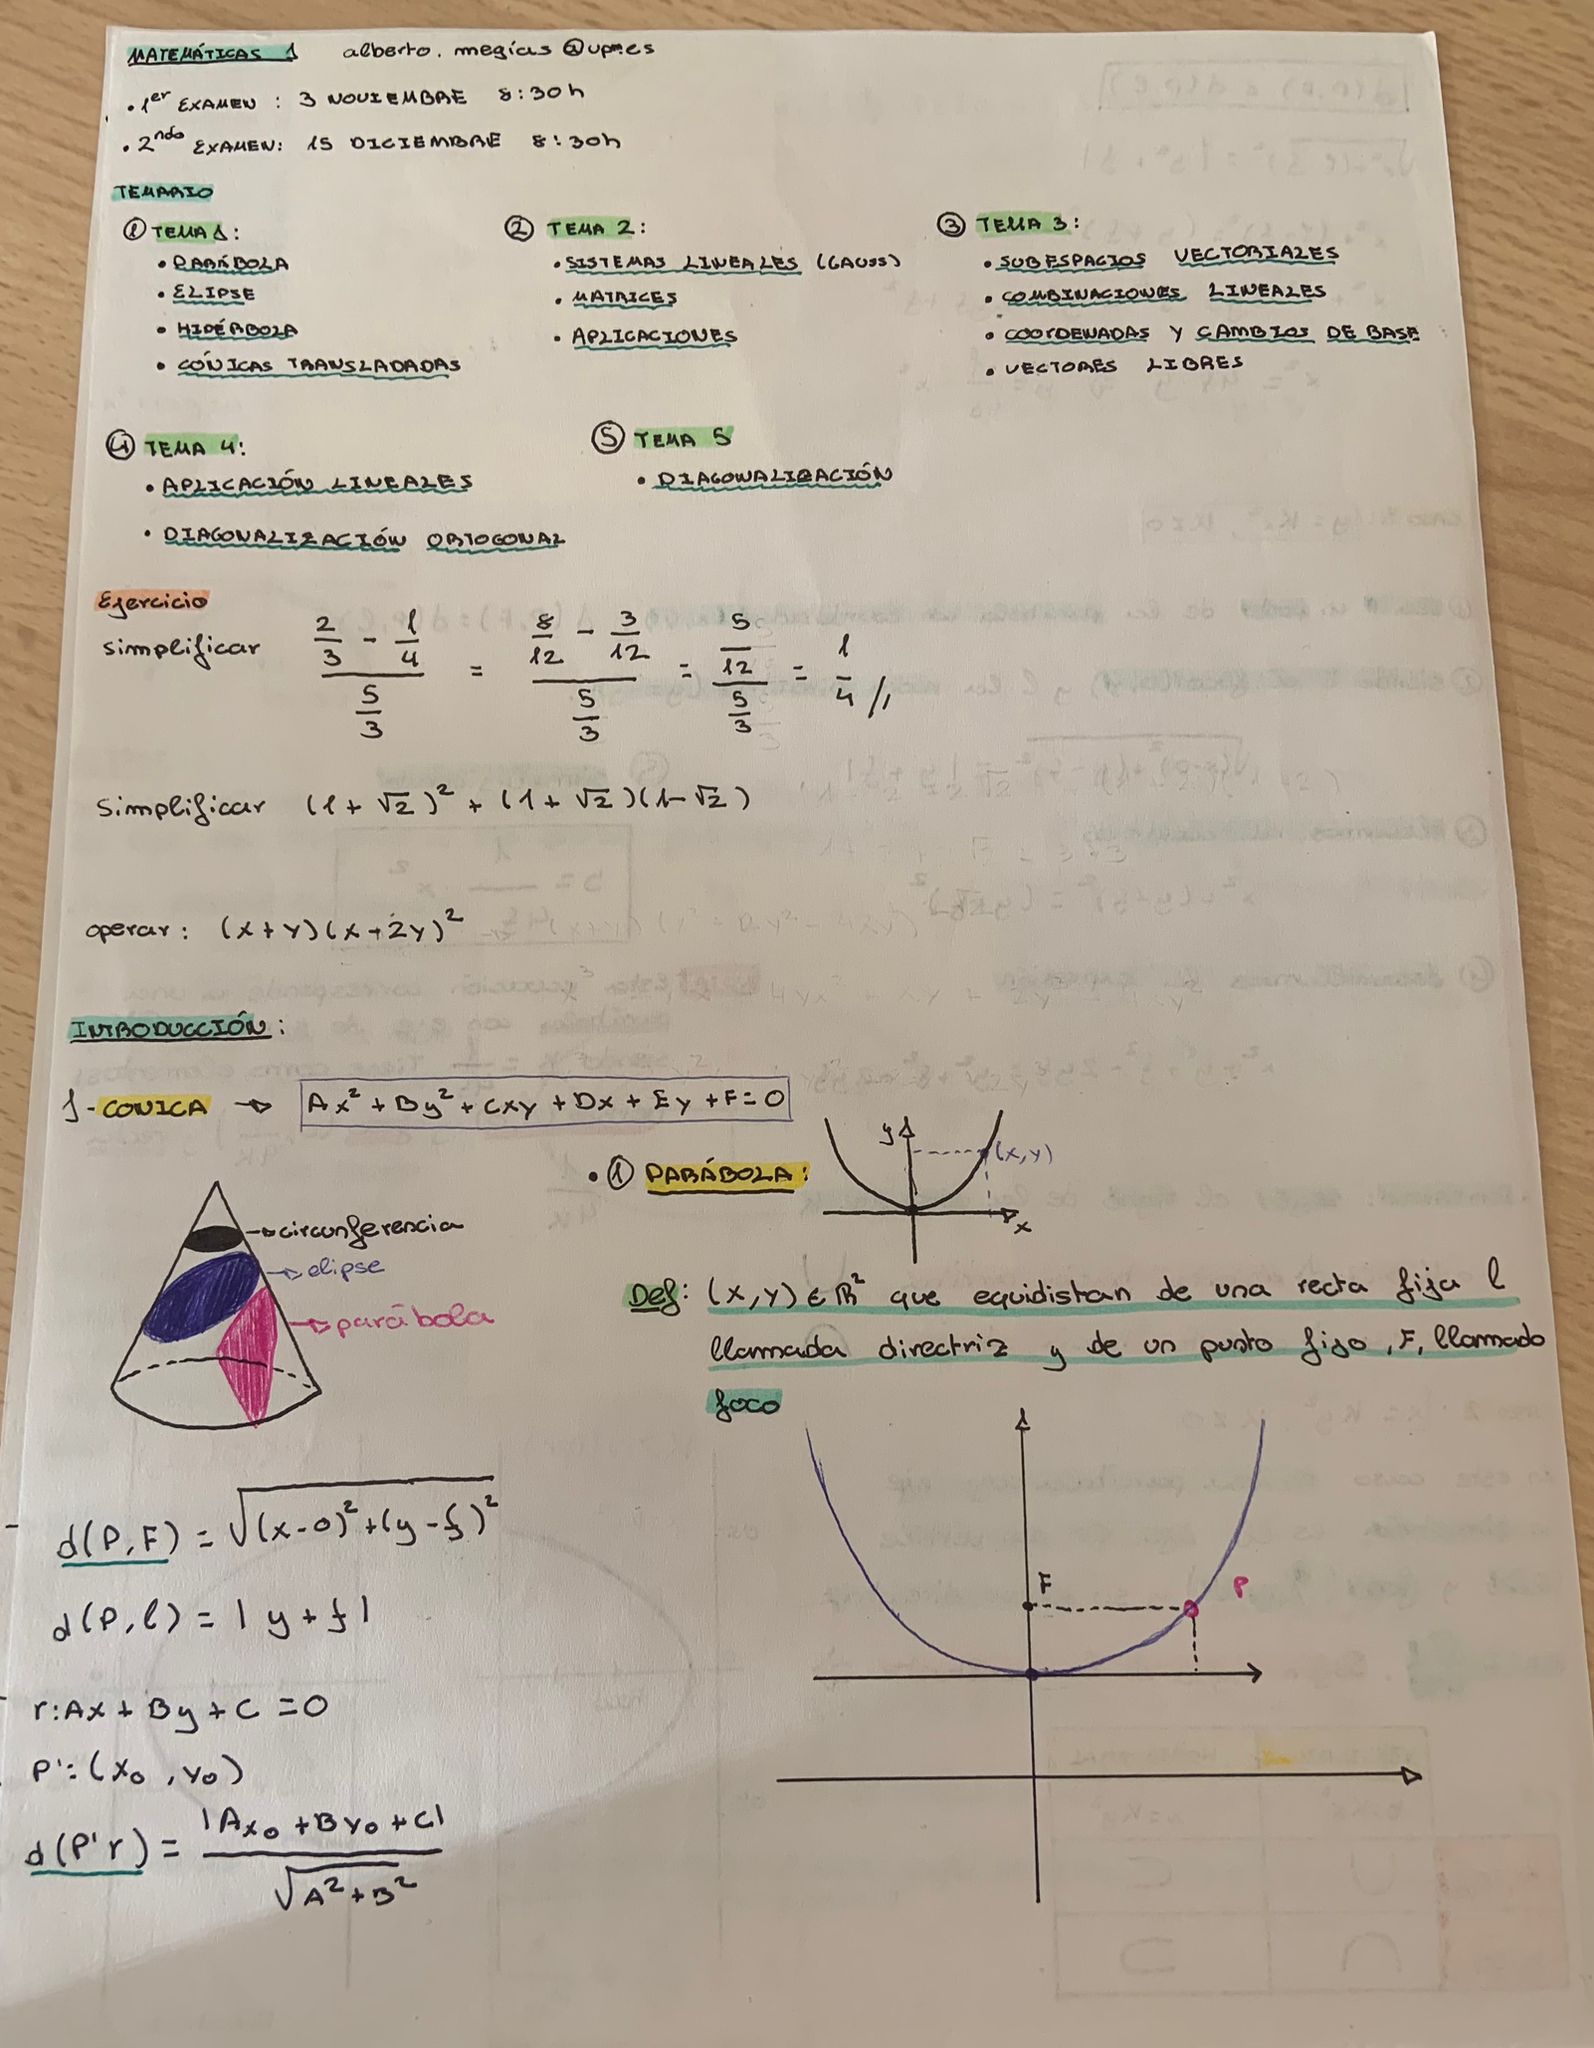 MATEMÁTICAS 1 alberto.megias@upm.es
• 1er EXAMEN : 3 NOVIEMBRE 8:30h
• 2ndo EXAMEN: 15 DICIEMBRE 8:30h
TEMARIO
① TEMA 1:
• PARÁBOLA
• ELIPSE
• HIPÉRBOLA
• CÓNICAS TRANSLADADAS
② TEMA 2:
• SISTEMAS LINEALES (GAUSS)
• MATRICES
• APLICACIONES
③ TEMA 3:
• SUBESPACIOS VECTORIALES
• COMBINACIONES LINEALES
• COORDENADAS Y CAMBIOS DE BASE
• VECTORES LIBRES
④ TEMA 4:
• APLICACIÓN LINEALES
• DIAGONALIZACIÓN ORTOGONAL
⑤ TEMA 5
• DIAGONALIZACIÓN
Ejercicio
simplificar (2/3 - 1/4)/(5/3) = (8/12 - 3/12)/(5/3) = (5/12)/(5/3) = 1/4 //
Simplificar (1+√2)² + (1+√2)(1-√2)
operar: (x+y)(x+2y)²
INTRODUCCIÓN:
1- CONICA → Ax² + By² + Cxy + Dx + Ey + F = 0
• ① PARÁBOLA:
y
(x,y)
x
→ circunferencia
→ elipse
→ parábola
Def: (x,y) ∈ ℝ² que equidistan de una recta fija l
llamada directriz y de un punto fijo, F, llamado
foco
F
P
d(P,F) = √((x-0)² + (y-f)²)
d(P,l) = |y+f|
r: Ax + By + C = 0
P': (x₀, y₀)
d(P' r) = |Ax₀ + By₀ + C| / √(A² + B²)